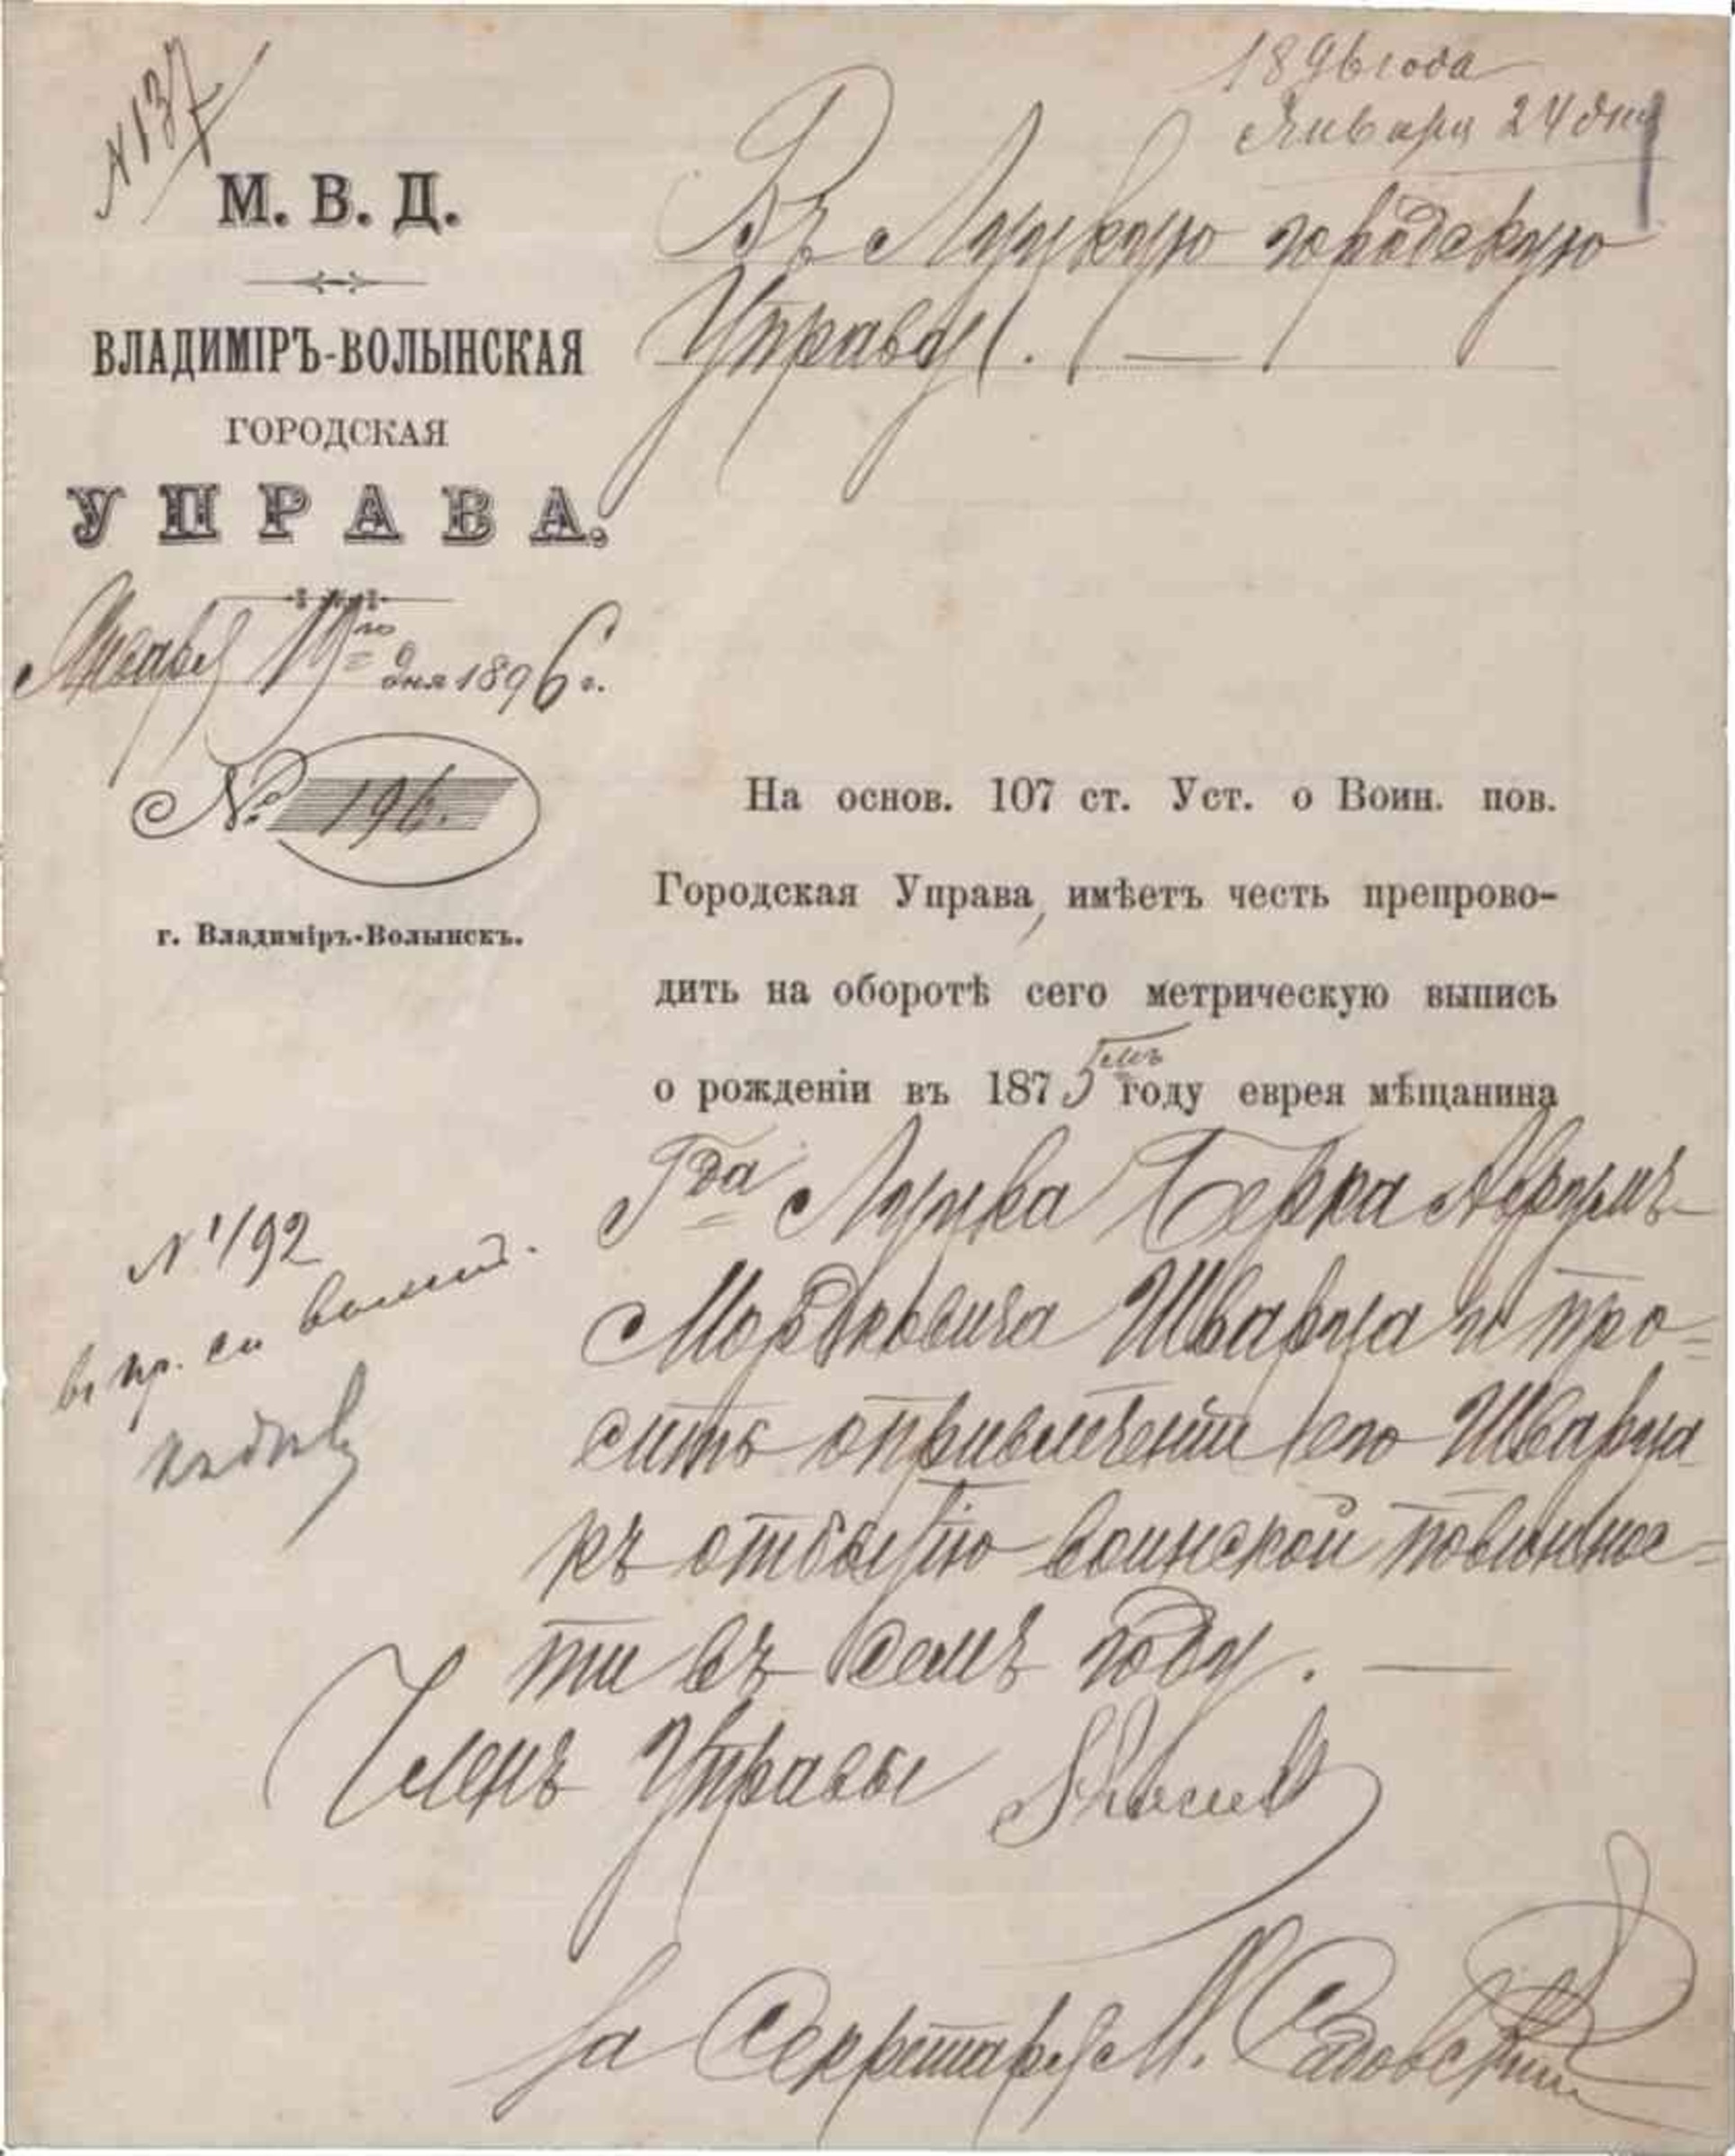 № 137
1896 года
Января 24 дня
М. В. Д.
ВЛАДИМІРЪ-ВОЛЫНСКАЯ
ГОРОДСКАЯ
УПРАВА.
Января 19го дня 1896 г.
№ 196.
г. Владиміръ-Волынскъ.
Въ Луцкую городскую
Управу.
На основ. 107 ст. Уст. о Воин. пов.
Городская Управа, имѣетъ честь препрово-
дить на оборотѣ сего метрическую выпись
о рожденіи въ 1875мъ году еврея мѣщанина
Гда Луцка Берка Аврумъ
Мордковича Шварца и про=
сить о привлеченіи его Шварца
къ отбытію воинской повиннос=
ти въ семъ году. —
№ 1/92
въ пр. си
Членъ Управы
За Секретаря М. Садовскій